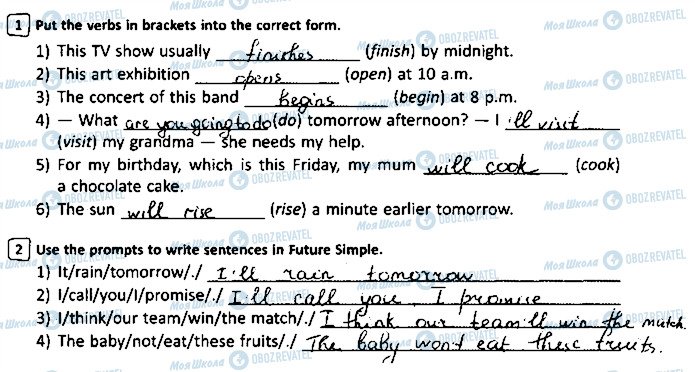 1 Put the verbs in brackets into the correct form.
1) This TV show usually finishes (finish) by midnight.
2) This art exhibition opens (open) at 10 a.m.
3) The concert of this band begins (begin) at 8 p.m.
4) — What are you going to do (do) tomorrow afternoon? — I 'll visit
(visit) my grandma — She needs my help.
5) For my birthday, which is this Friday, my mum will cook (cook)
a chocolate cake.
6) The sun will rise (rise) a minute earlier tomorrow.
2 Use the prompts to write sentences in Future Simple.
1) It/rain/tomorrow/./ I'll rain tomorrow
2) I/call/you/I/promise/./ I'll call you, I promise
3) I/think/our team/win/the match/./ I think our team'll win the match.
4) The baby/not/eat/these fruits/./ The baby won't eat these fruits.
МояШкола OBOZREVATEL